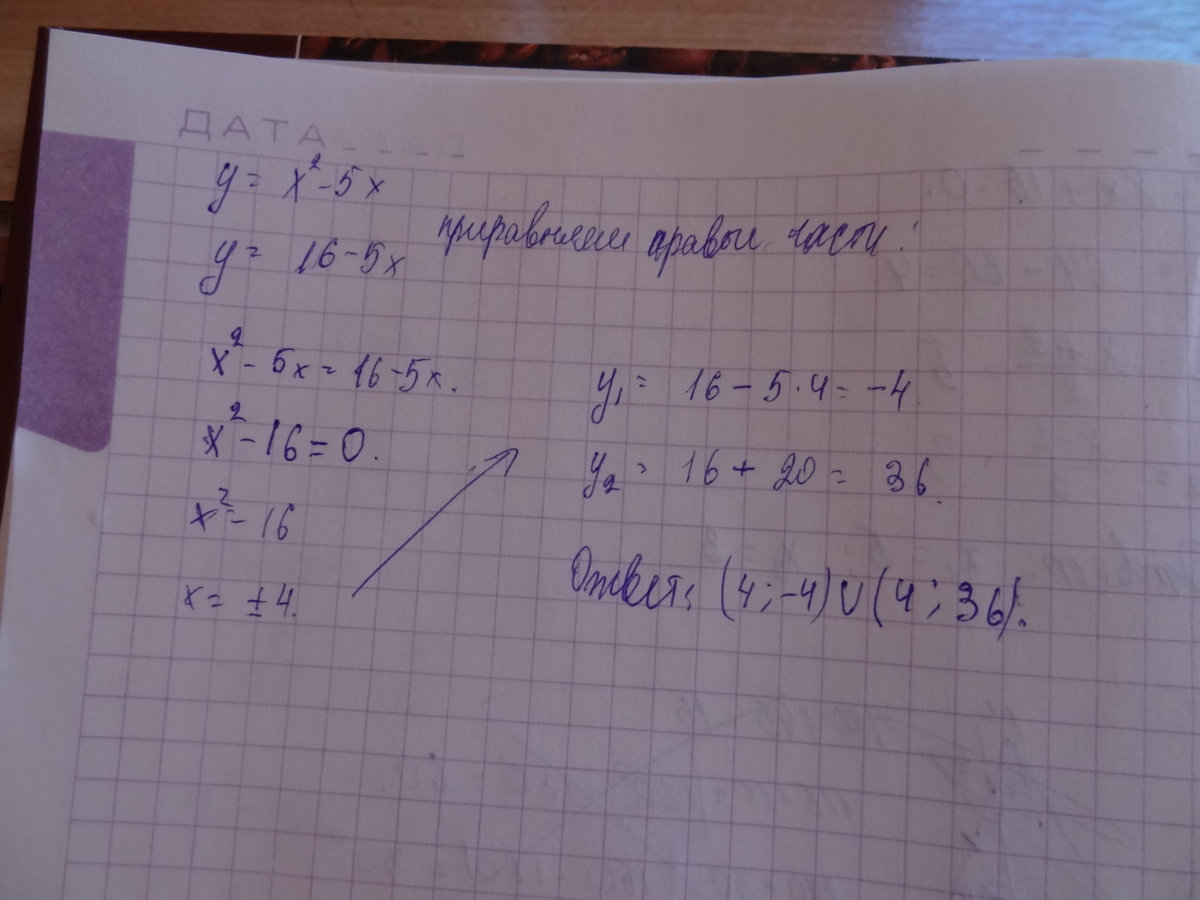 ДАТА
y = x² - 5x
y = 16 - 5x
приравняем правые части:
x² - 5x = 16 - 5x.
x² - 16 = 0.
x² = 16
x = ± 4.
y₁ = 16 - 5 · 4 = -4.
y₂ = 16 + 20 = 36.
Ответ: (4; -4) ∪ (4; 36).